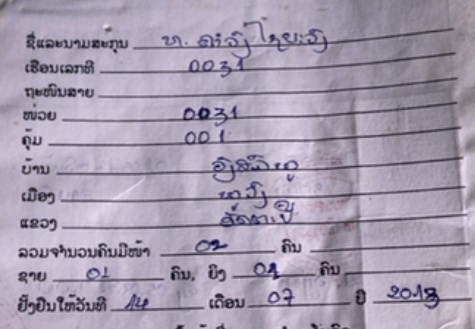 ຊື່ແລະນາມສະກຸນ ທ. ຄຳວົງ ໄຊຍະວົງ
ເຮືອນເລກທີ 0031
ຖະໜົນສາຍ
ໜ່ວຍ 0031
ຄຸ້ມ 001
ບ້ານ
ເມືອງ ພູວົງ
ແຂວງ ອັດຕະປື
ລວມຈຳນວນຄົນມີໜ້າ 02 ຄົນ
ຊາຍ 01 ຄົນ, ຍິງ 01 ຄົນ
ຢັ້ງຢືນໃຫ້ວັນທີ 14 ເດືອນ 07 ປີ 2018